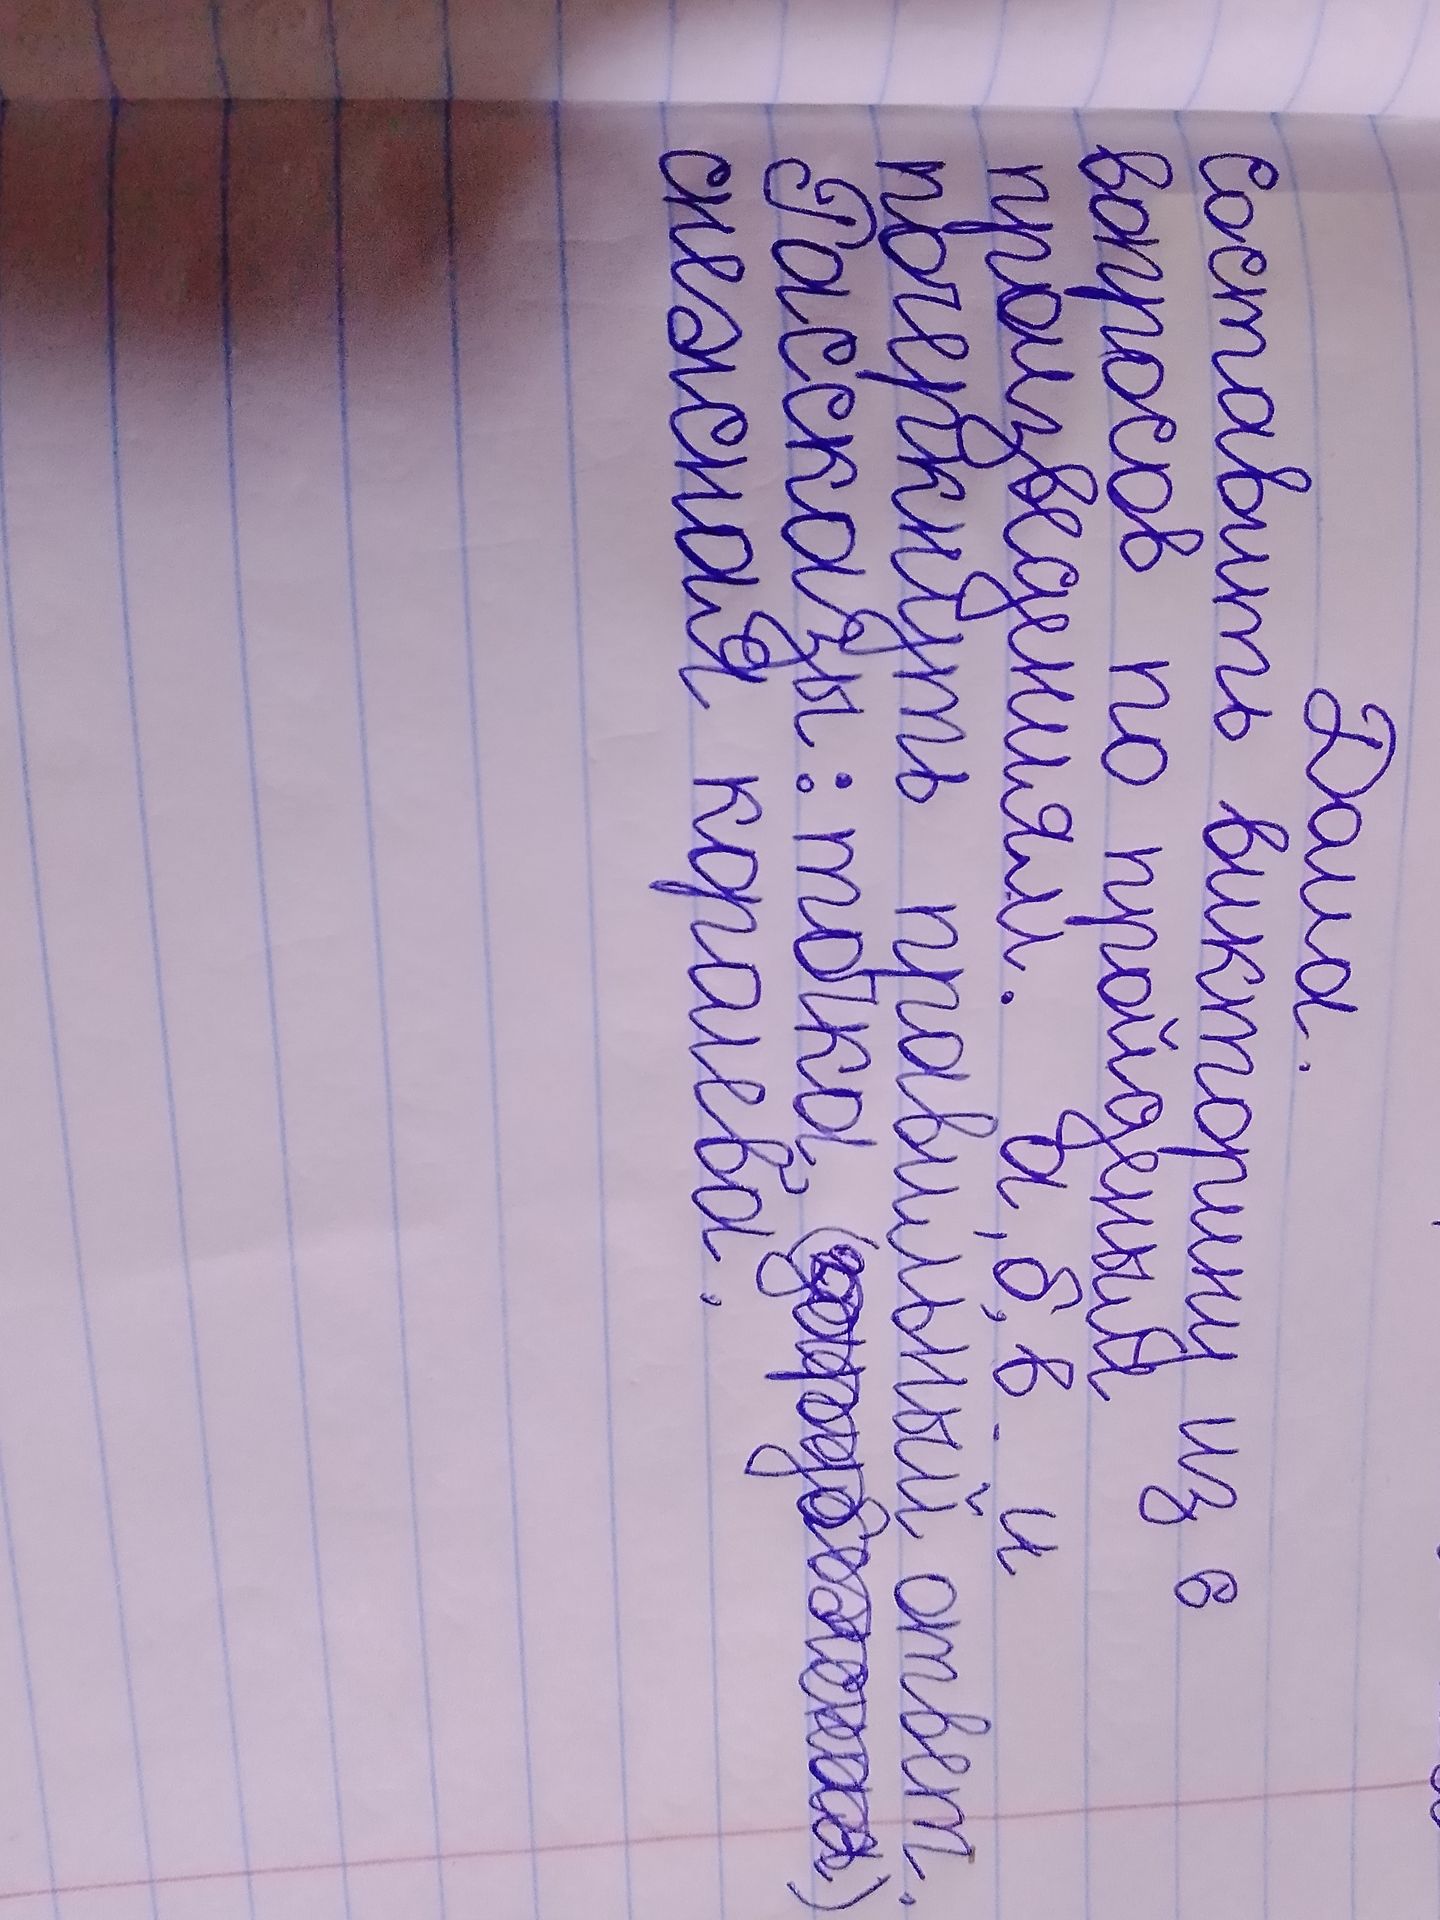 Дома.
Составить викторину из 6
вопросов по пройденым
произведениям. а, б, в - и
почеркнуть правильный ответ.
Рассказы: точка,
снежная королева.